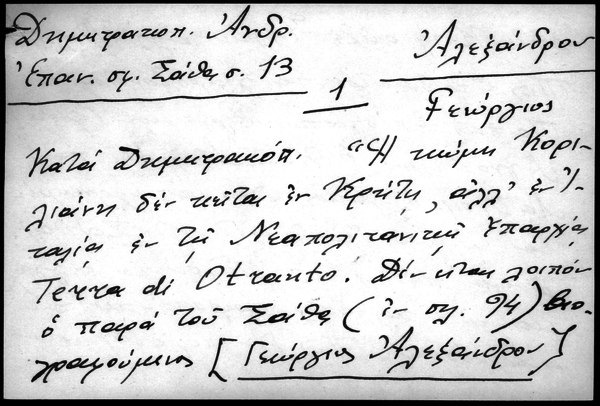 Δημητρακοπ. Ἀνδρ.
Ἀλεξάνδρου
Ἐπαν. σφ. Σάθα σ. 13
1
Γεώργιος
Κατά Δημητρακόπ. "Ἡ κώμη Κορι-
λιάνη δέν κεῖται ἐν Κρήτῃ, ἀλλ' ἐν Ἰ-
ταλίᾳ ἐν τῇ Νεαπολιτανικῇ ἐπαρχίᾳ
Terra di Otranto. Δέν εἶναι λοιπόν
ὁ παρά τοῦ Σάθα (ἐν σελ. 94) βιο-
γραφούμενος [Γεώργιος Ἀλεξάνδρου]